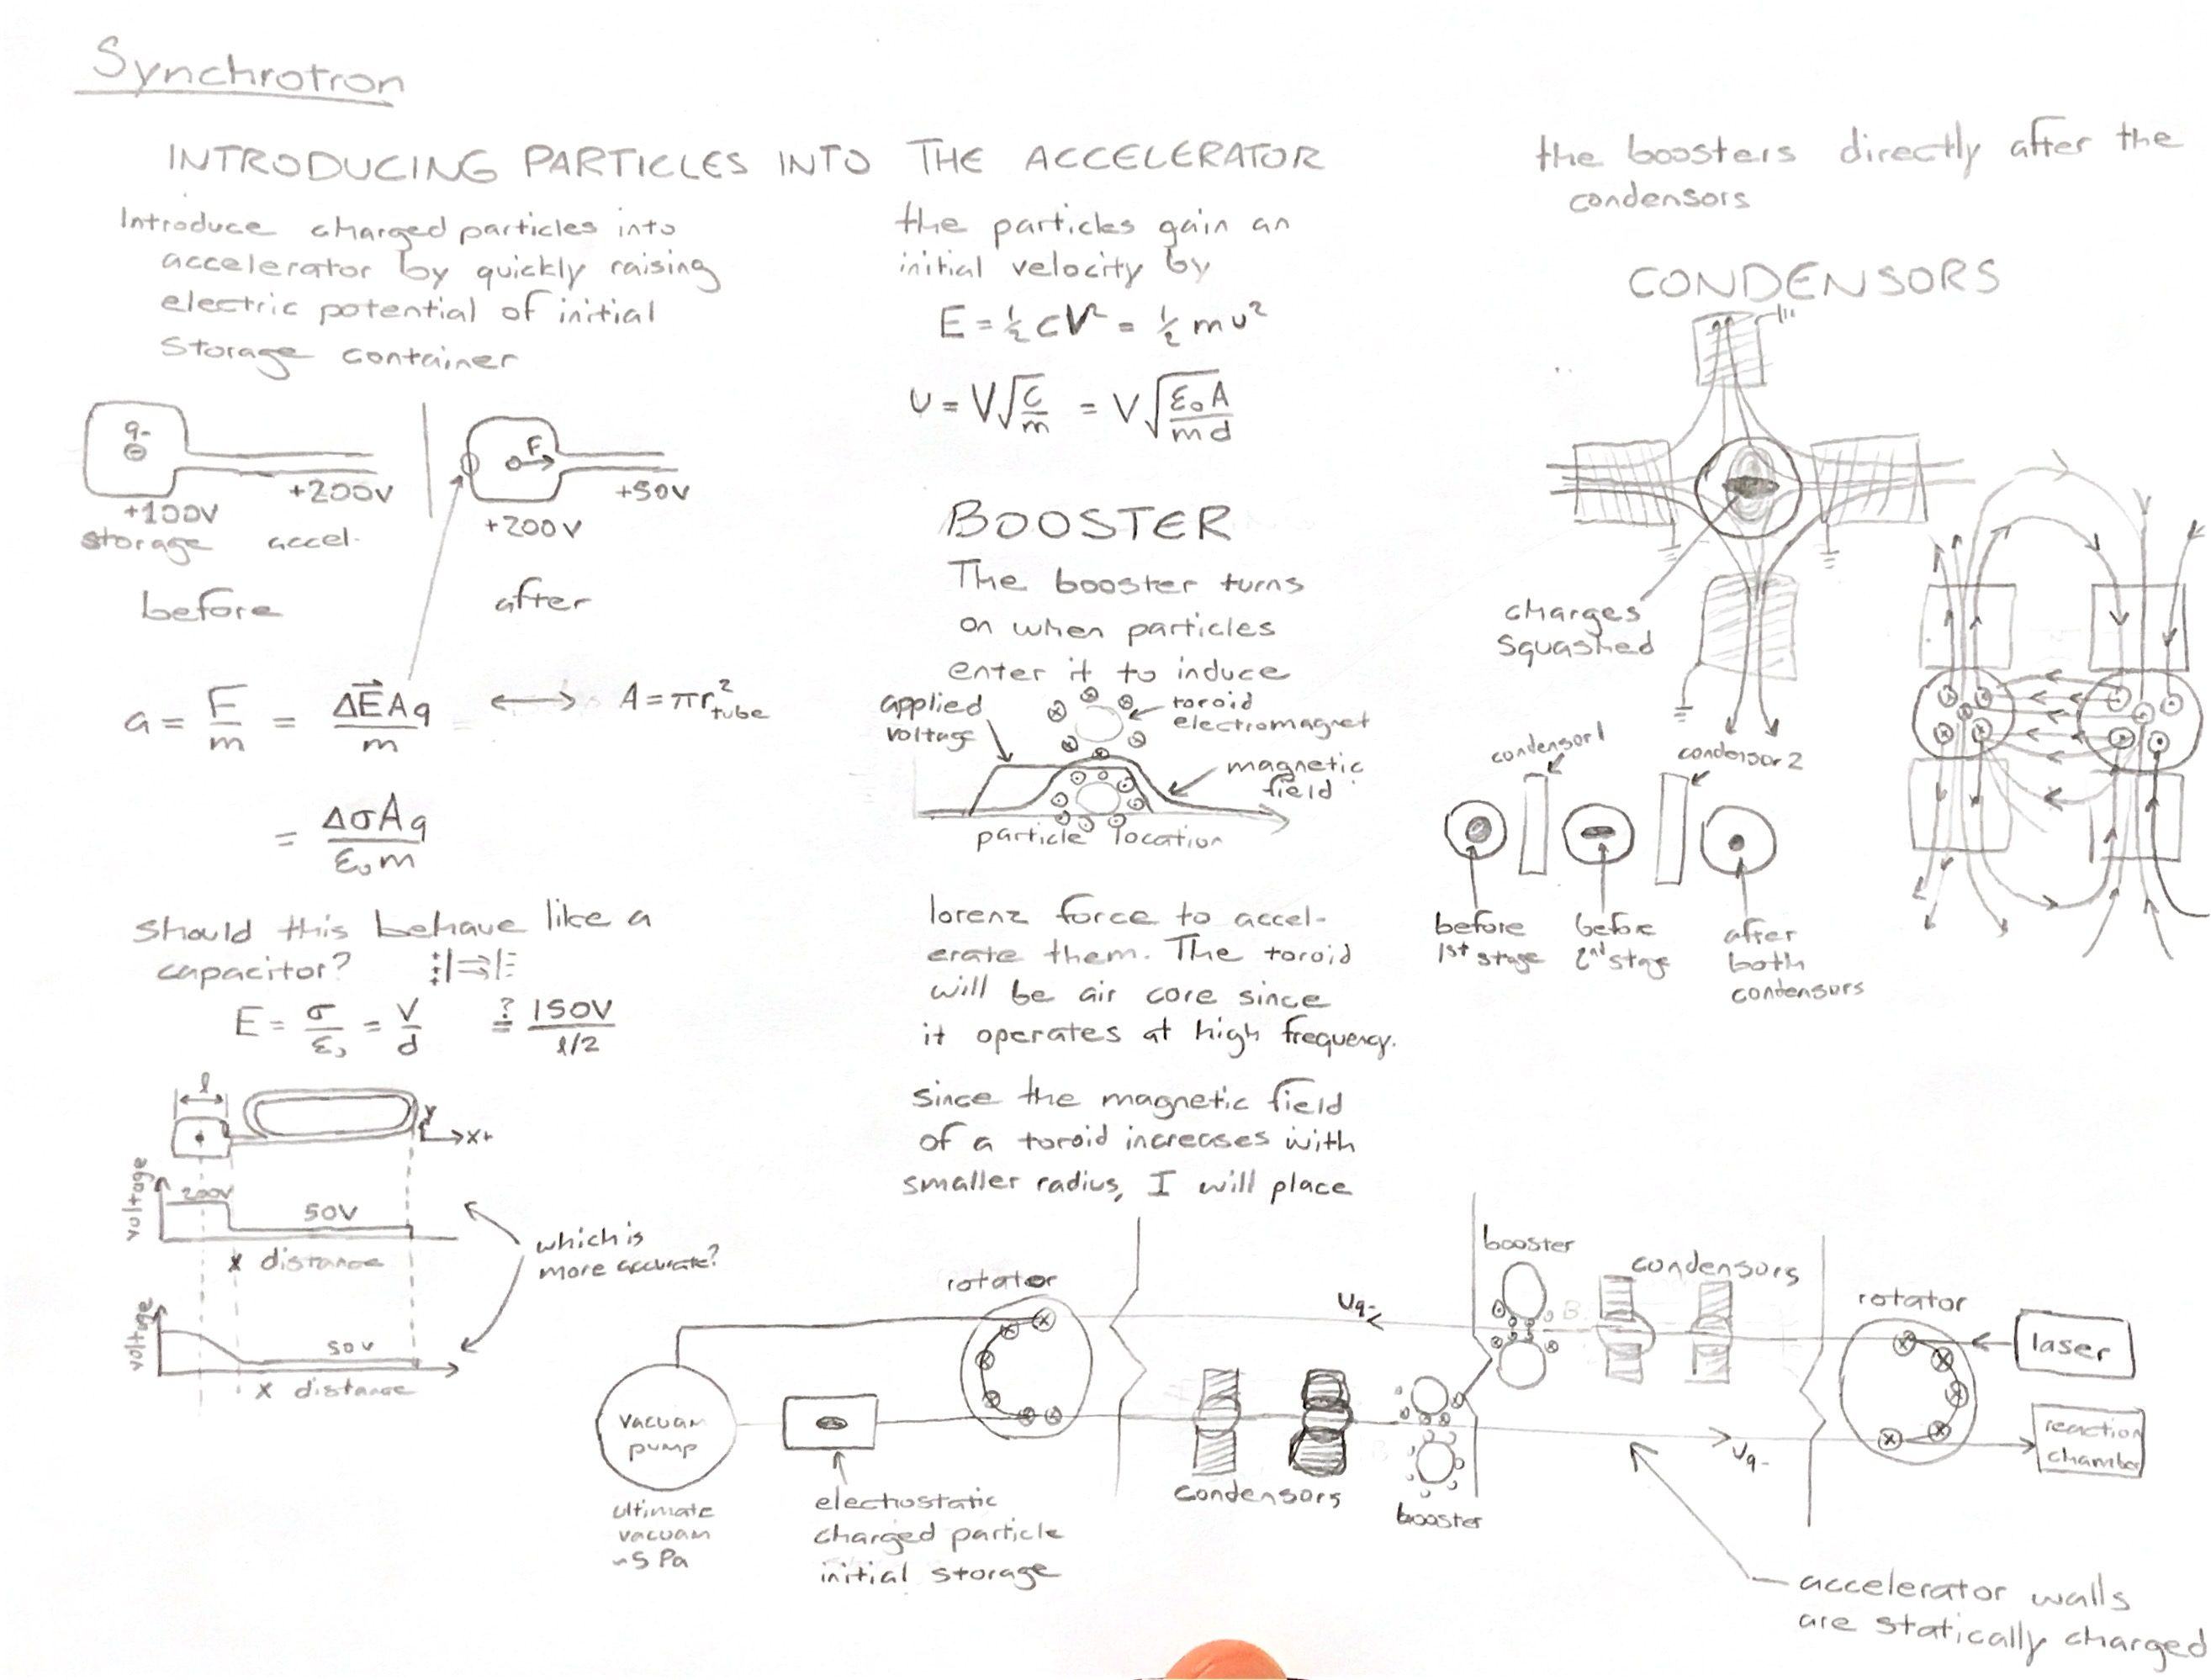 Synchrotron
INTRODUCING PARTICLES INTO THE ACCELERATOR
Introduce charged particles into
accelerator by quickly raising
electric potential of initial
storage container
q-
+100V
+200V
storage accel.
before
F
+50V
+200V
after
a = F/m = ΔE⃗Aq/m ⟷ A = πr²tube
= ΔσAq/ε₀m
should this behave like a
capacitor?
E = σ/ε₀ = V/d ≟ 150V/l/2
l
y
x+
voltage
200V
50V
x distance
which is
more accurate?
voltage
50V
x distance
the particles gain an
initial velocity by
E = ½CV² = ½mv²
υ = V√C/m = V√ε₀A/md
BOOSTER
The booster turns
on when particles
enter it to induce
applied
voltage
toroid
electromagnet
magnetic
field
particle location
lorenz force to accel-
erate them. The toroid
will be air core since
it operates at high frequency.
since the magnetic field
of a toroid increases with
smaller radius, I will place
the boosters directly after the
condensors
CONDENSORS
charges
squashed
condensor 1
condensor 2
before
1st stage
before
2nd stage
after
both
condensors
rotator
vacuum
pump
ultimate
vacuum
~5 Pa
electrostatic
charged particle
initial storage
condensors
booster
Uq-
booster
condensors
rotator
laser
reaction
chamber
Uq-
accelerator walls
are statically charged